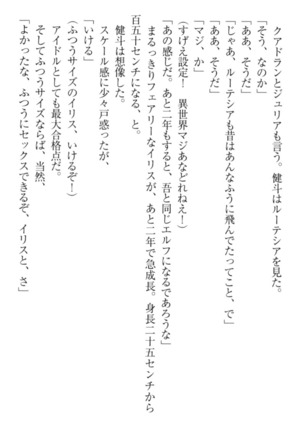 クアドランとジュリアも言う。健斗はルーテシアを見た。
「そう、なのか」
「ああ、そうだ」
「じゃあ、ルーテシアも昔はあんなふうに飛んでたってこと、で」
「ああ、そうだ」
「マジ、か」
（すげえ設定！　異世界マジあなどれねえ！）
「あの感じだ。あと二年もすると、吾と同じエルフになるであろうな」
まるっきりフェアリーなイリスが、あと二年で急成長。身長二十五センチから
百五十センチになる、と。
健斗は想像した。
スケール感に少々戸惑ったが、
「いける」
（ふつうサイズのイリス、いけるぞ！）
アイドルとしても最大合格点だ。
そしてふつうサイズならば、当然、
「よかったな、ふつうにセックスできるぞ、イリスと、さ」